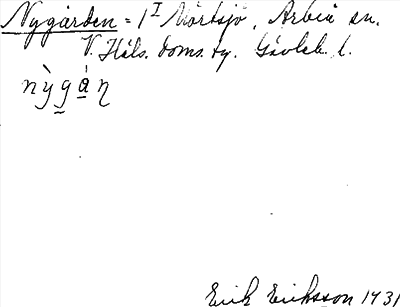 Nygården = 1^I Mörtsjö, Arbrå sn.
V. Häls. doms. ty. Gävleb. l.
nỳgán
Erik Eriksson 1931